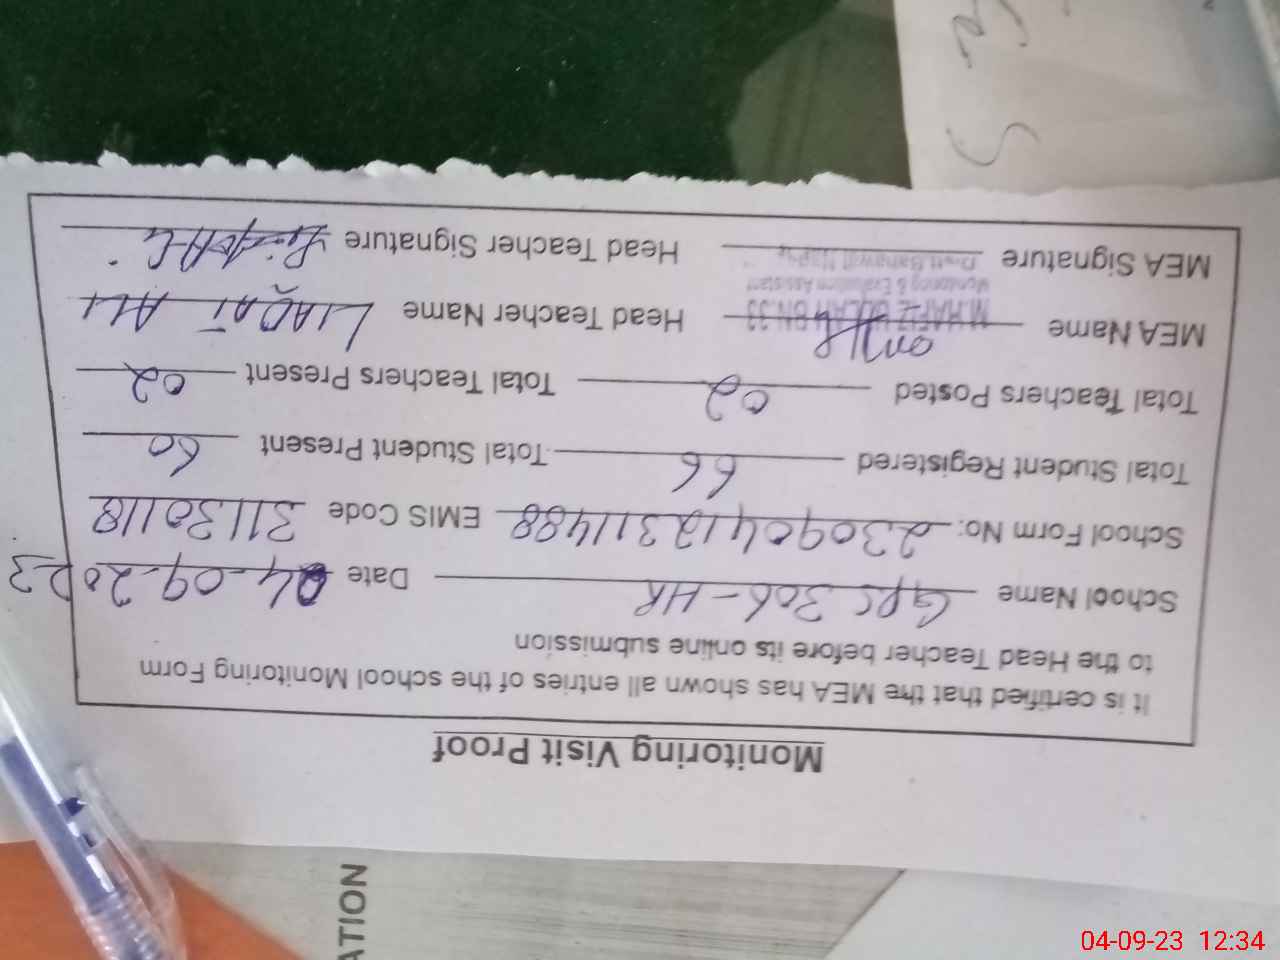 Monitoring Visit Proof
It is certified that the MEA has shown all entries of the school Monitoring Form
to the Head Teacher before its online submission
School Name GPS 306-HR Date 04-09-2023
School Form No: 23090412311488 EMIS Code 31130118
Total Student Registered 66 Total Student Present 60
Total Teachers Posted 02 Total Teachers Present 02
MEA Name Head Teacher Name LIAQAT ALI
Monitoring & Evaluations Assistant
MEA Signature Head Teacher Signature
ATION
04-09-23 12:34